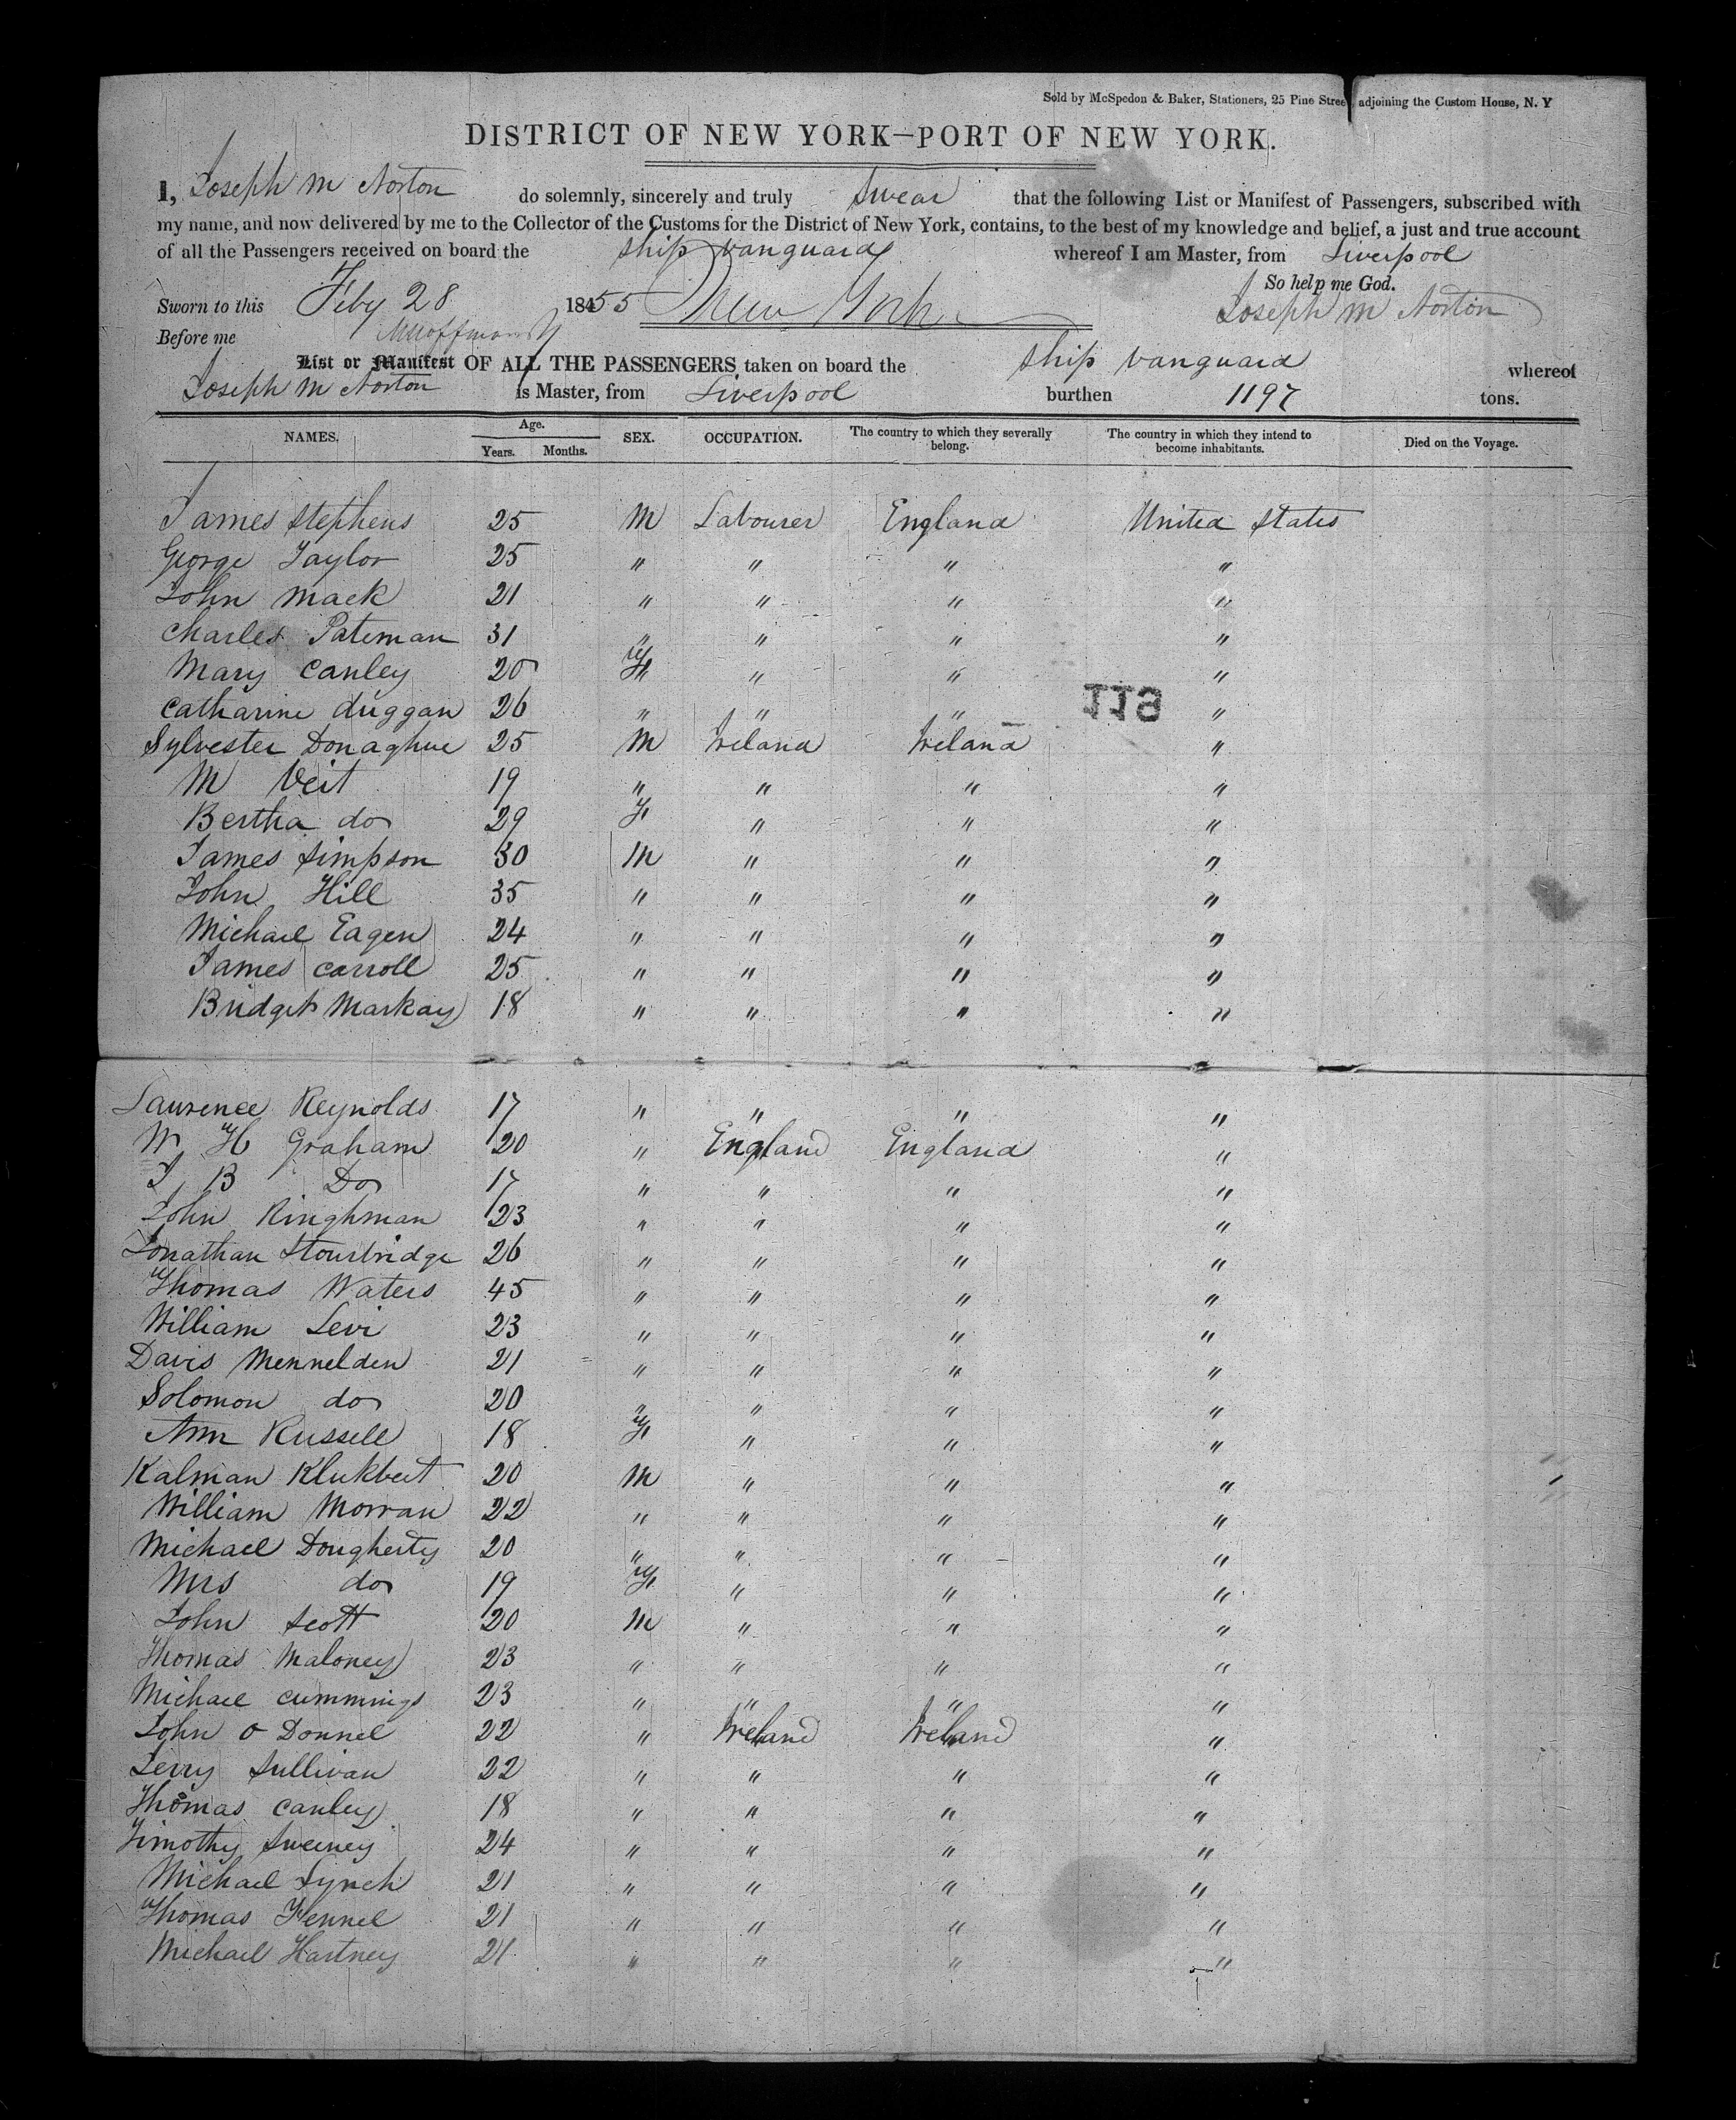 Sold by McSpedon & Baker, Stationers, 25 Pine Street, adjoining the Custom House, N. Y
DISTRICT OF NEW YORK—PORT OF NEW YORK.
I, Joseph M Norton do solemnly, sincerely and truly swear that the following List or Manifest of Passengers, subscribed with
my name, and now delivered by me to the Collector of the Customs for the District of New York, contains, to the best of my knowledge and belief, a just and true account
of all the Passengers received on board the Ship Vanguard whereof I am Master, from Liverpool
So help me God.
Sworn to this Feby 28 1855 New York Joseph M Norton
Before me
List or Manifest OF ALL THE PASSENGERS taken on board the Ship Vanguard whereof
Joseph M Norton is Master, from Liverpool burthen 1197 tons.
NAMES. Age. Years. Months. SEX. OCCUPATION. The country to which they severally belong. The country in which they intend to become inhabitants. Died on the Voyage.
James Stephens 25 M Labourer England United States
George Taylor 25 " " " "
John Mack 21 " " " "
Charles Pateman 31 " " " "
Mary Canley 20 F " " "
Catharine Duggan 26 " " " "
119
Sylvester Donaghue 25 M Ireland Ireland "
M Veit 19 " " " "
Bertha do 29 F " " "
James Simpson 30 M " " "
John Hill 35 " " " "
Michael Eagen 24 " " " "
James Carroll 25 " " " "
Bridget Markay 18 " " " "
Laurence Reynolds 17 " " " "
W H Graham 20 " England England "
J B Do 17 " " " "
John Kinghman 23 " " " "
Jonathan Stourbridge 26 " " " "
Thomas Waters 45 " " " "
William Levi 23 " " " "
Davis Mennelden 21 " " " "
Solomon do 20 " " " "
Ann Russell 18 F " " "
Kalman Klukbert 20 M " " "
William Morran 22 " " " "
Michael Dougherty 20 " " " "
Mrs do 19 F " " "
John Scott 20 M " " "
Thomas Maloney 23 " " " "
Michael Cummings 23 " " " "
John O Donnel 22 " Ireland Ireland "
Jerry Sullivan 22 " " " "
Thomas Canley 18 " " " "
Timothy Sweeney 24 " " " "
Michael Lynch 21 " " " "
Thomas Fennel 21 " " " "
Michael Hartney 21 " " " "